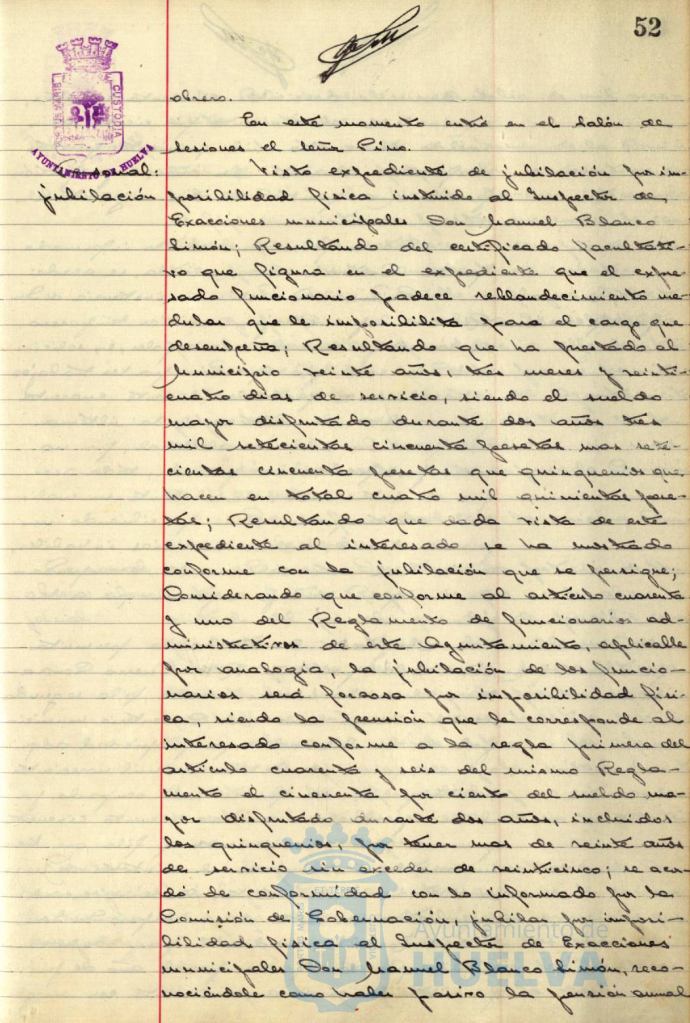 52
obrero.
En este momento entró en el Salón de
sesiones el señor Pino.
Personal:
jubilación
Visto expediente de jubilación por im-
posibilidad física instruido al Inspector de
Exacciones municipales Don Manuel Blanco
Limón; Resultando del certificado facultati-
vo que figura en el expediente que el expre-
sado funcionario padece reblandecimiento me-
dular que le imposibilita para el cargo que
desempeña; Resultando que ha prestado al
Municipio veinte años, tres meses y veinti-
cuatro días de servicio, siendo el sueldo
mayor disfrutado durante dos años tres
mil setecientas cincuenta pesetas mas sete-
cientas cincuenta pesetas que quinquenios que
hacen en total cuatro mil quinientas pese-
tas; Resultando que dada vista de este
expediente al interesado se ha mostrado
conforme con la jubilación que se persigue;
Considerando que conforme al artículo cuarenta
y uno del Reglamento de funcionarios ad-
ministrativos de este Ayuntamiento, aplicable
por analogía, la jubilación de los funcio-
narios será forzosa por imposibilidad físi-
ca, siendo la pensión que le corresponde al
interesado conforme a la regla primera del
artículo cuarenta y seis del mismo Regla-
mento el cincuenta por ciento del sueldo ma-
yor disfrutado durante dos años, incluidos
los quinquenios, por tener mas de veinte años
de servicio sin exceder de veinticinco; se acor-
dó de conformidad con lo informado por la
Comisión de Gobernación, jubilar por imposi-
bilidad física al Inspector de Exacciones
municipales Don Manuel Blanco Limón, reco-
nociéndole como haber pasivo la pensión anual
PORTUS MARIS
CUSTODIA
AYUNTAMIENTO DE HUELVA
Ayuntamiento de
HUELVA